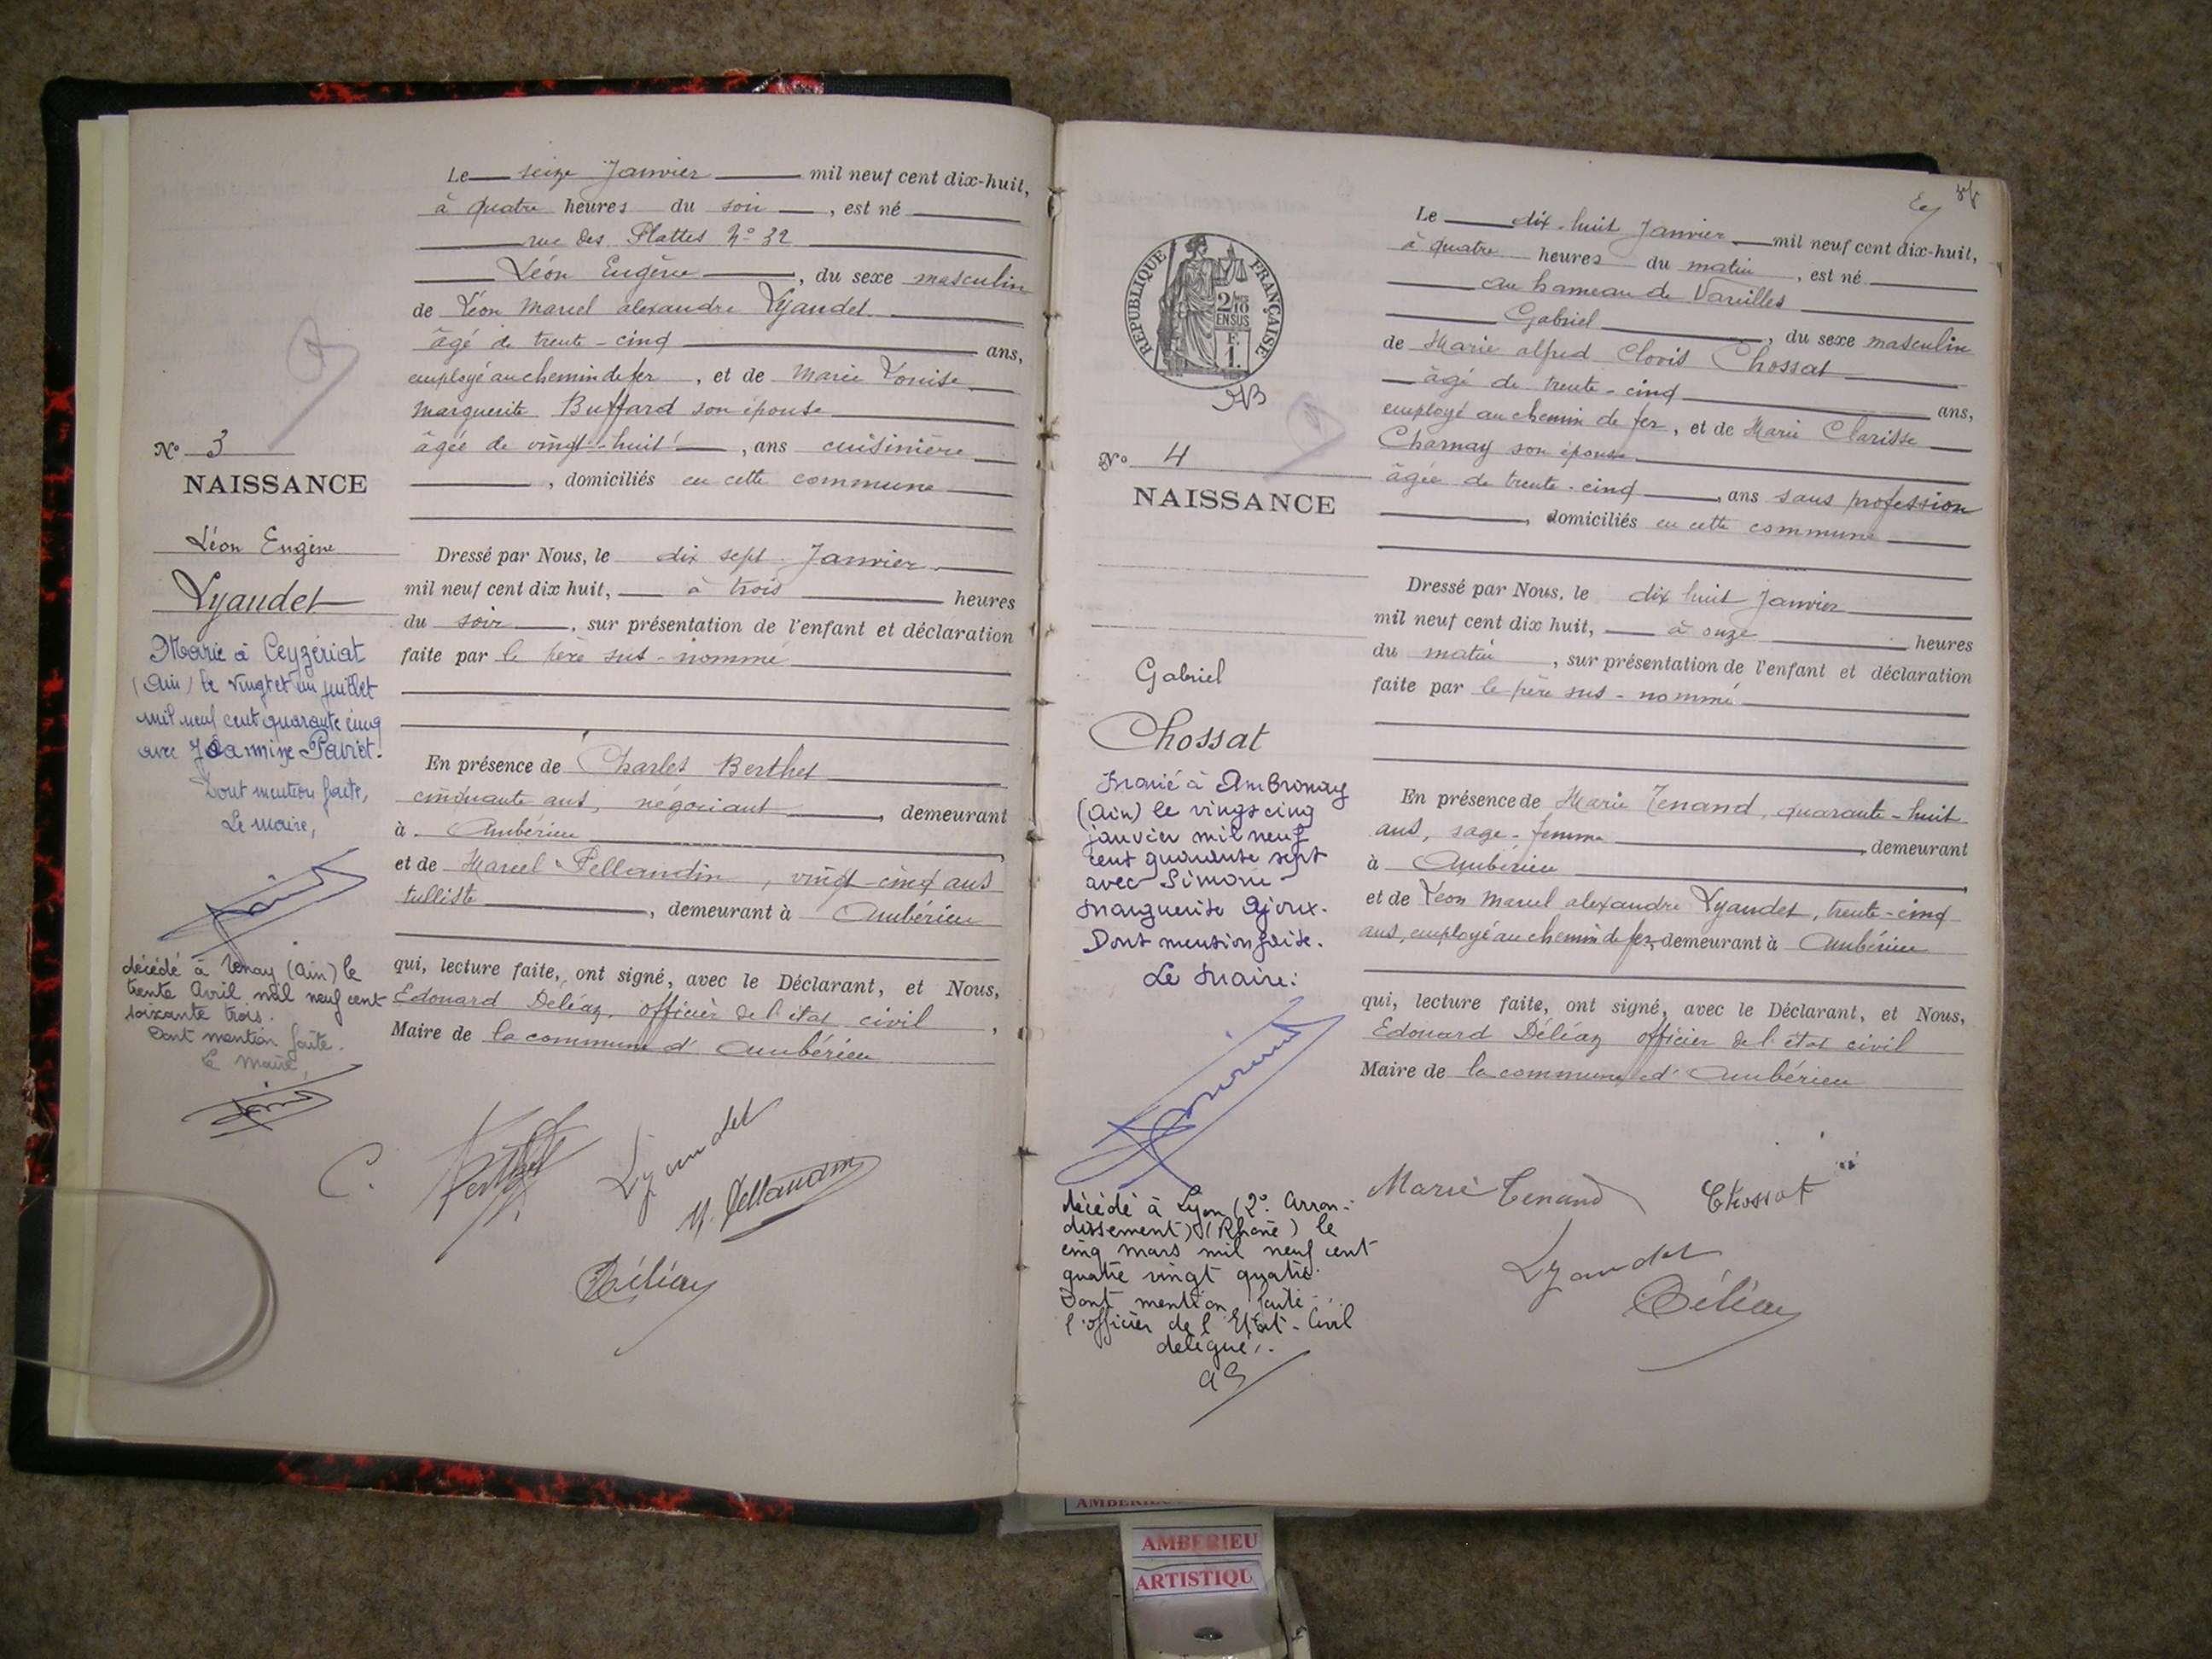 Le seize Janvier mil neuf cent dix-huit,
à quatre heures du soir, est né
rue des Plattes N° 32
Léon Eugène, du sexe masculin
de Léon Marcel alexandre Lyaudet
âgé de trente-cinq ans,
employé au chemin de fer, et de Marie Louise
Marguerite Buffard son épouse
âgée de vingt-huit, ans cuisinière
, domiciliés en cette commune
N° 3
NAISSANCE
Léon Eugène
Lyaudet
Marié à Ceyzériat
(Ain) le vingt et un juillet
mil neuf cent quarante cinq
avec Jeannine Paviot.
Dont mention faite,
Le Maire,
décédé à Tenay (Ain) le
trente Avril mil neuf cent
soixante trois.
Dont mention faite.
Le Maire,
Dressé par Nous, le dix sept Janvier
mil neuf cent dix huit, à trois heures
du soir, sur présentation de l'enfant et déclaration
faite par le père sus-nommé
En présence de Charles Berthet
cinquante ans, négociant, demeurant
à Ambérieu
et de Marcel Pellandin, vingt-cinq ans
tulliste, demeurant à Ambérieu
qui, lecture faite, ont signé, avec le Déclarant, et Nous,
Edouard Déléaz, officier de l'état civil,
Maire de la commune d'Ambérieu
C. Berthet
Lyaudet
M. Pellandin
Déléaz
RÉPUBLIQUE FRANÇAISE
2/10
EN SUS
F.
1.
N° 4
NAISSANCE
Gabriel
Chossat
Marié à Ambronay
(Ain) le vingt cinq
janvier mil neuf
cent quarante sept
avec Simone
Marguerite Ajoux.
Dont mention faite.
Le Maire:
décédé à Lyon (2e Arron-
dissement) (Rhône) le
cinq mars mil neuf cent
quatre vingt quatre.
Dont mention faite
l'officier de l'Etat-Civil
délégué,
Le dix-huit Janvier mil neuf cent dix-huit,
à quatre heures du matin, est né
au hameau de Vareilles
Gabriel, du sexe masculin
de Marie alfred Clovis Chossat
âgé de trente-cinq ans,
employé au chemin de fer, et de Marie Clarisse
Charnay son épouse
âgée de trente-cinq, ans sans profession
, domiciliés en cette commune
Dressé par Nous, le dix huit Janvier
mil neuf cent dix huit, à onze heures
du matin, sur présentation de l'enfant et déclaration
faite par le père sus-nommé
En présence de Marie Tenand, quarante-huit
ans, sage-femme, demeurant
à Ambérieu
et de Léon Marcel alexandre Lyaudet, trente-cinq
ans, employé au chemin de fer, demeurant à Ambérieu
qui, lecture faite, ont signé, avec le Déclarant, et Nous,
Edouard Déléaz officier de l'état civil
Maire de la commune d'Ambérieu
Marie Tenand
Chossat
Lyaudet
Déléaz
AMBERIEU
ARTISTIQU